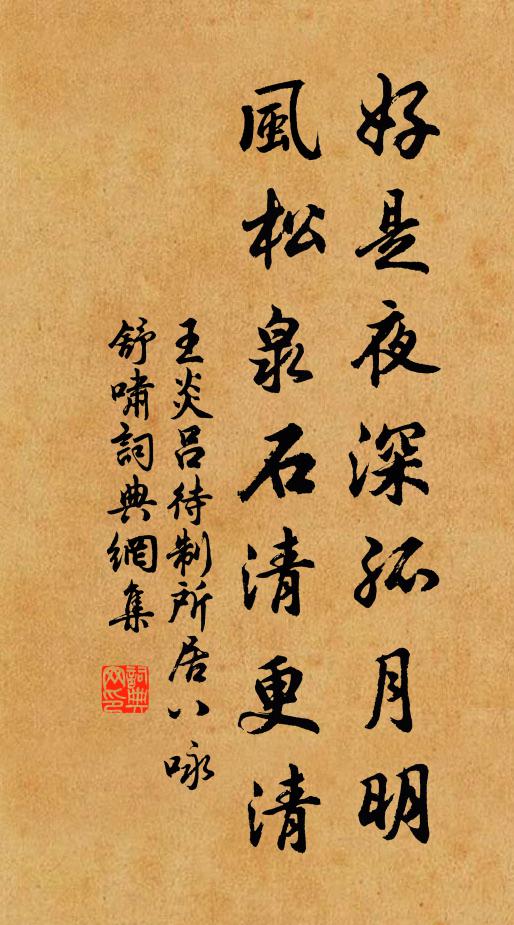 好是夜深孤月明
風松泉石清更清
王炎呂待制所居八咏
舒嘯詞典網集
詞典網印